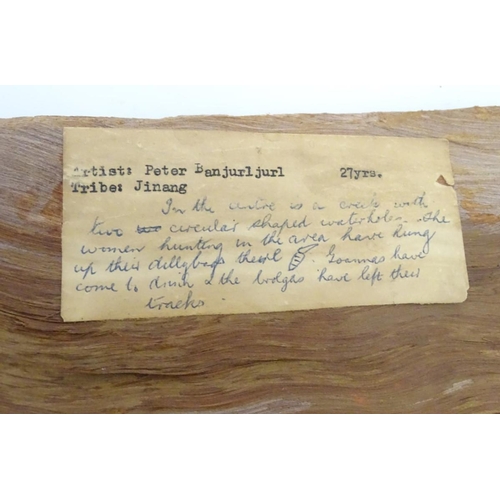 Artist: Peter Banjurljurl 27yrs.
Tribe: Jinang
In the centre is a creek with
two circular shaped waterholes. The
women hunting in the area have hung
up their dillybags there. Goannas have
come to drink & the brolgas have left their
tracks.